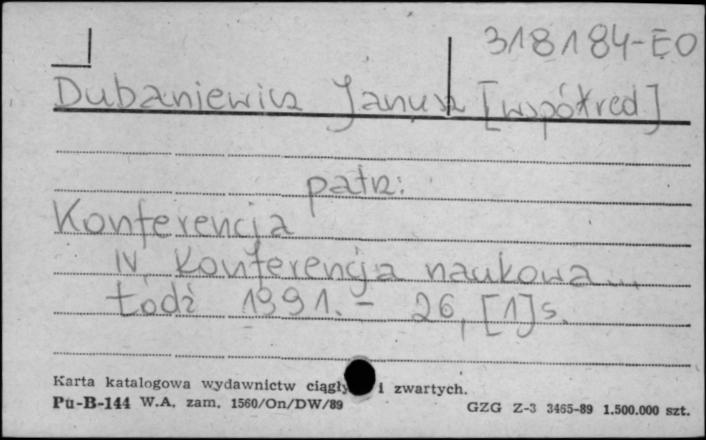 318184-EO
Dubaniewicz Janusz [współred.]
patrz:
Konferencja
IV Konferencja naukowa...
Łódź 1991. - 26, [1] s.
Karta katalogowa wydawnictw ciągłych i zwartych.
Pu-B-144 W.A. zam. 1560/On/DW/89
GZG Z-3 3465-89 1.500.000 szt.